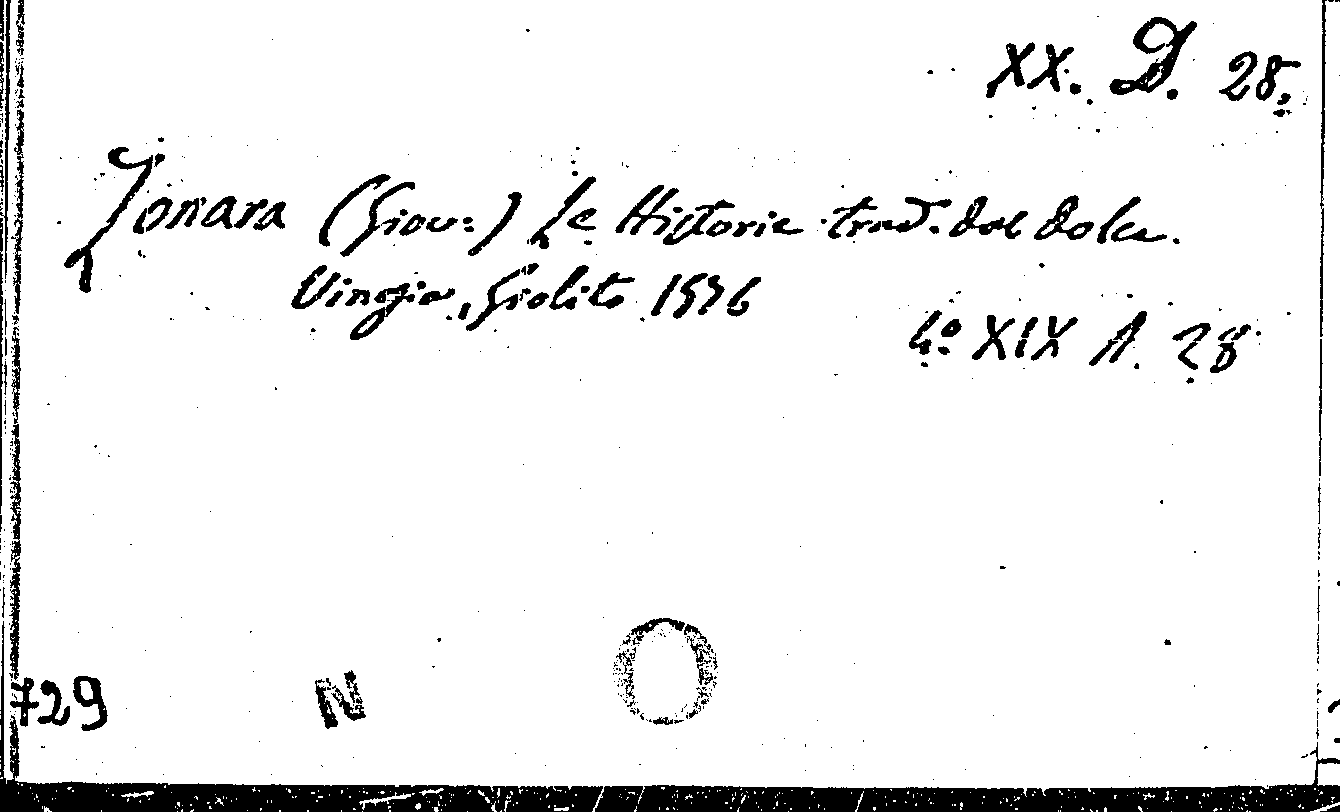 XX. D. 28.
Zonara (Giov:) Le Historie trad. dal Dolce.
Vinegia, Giolito 1576
4º XIX A. 28
729 N O